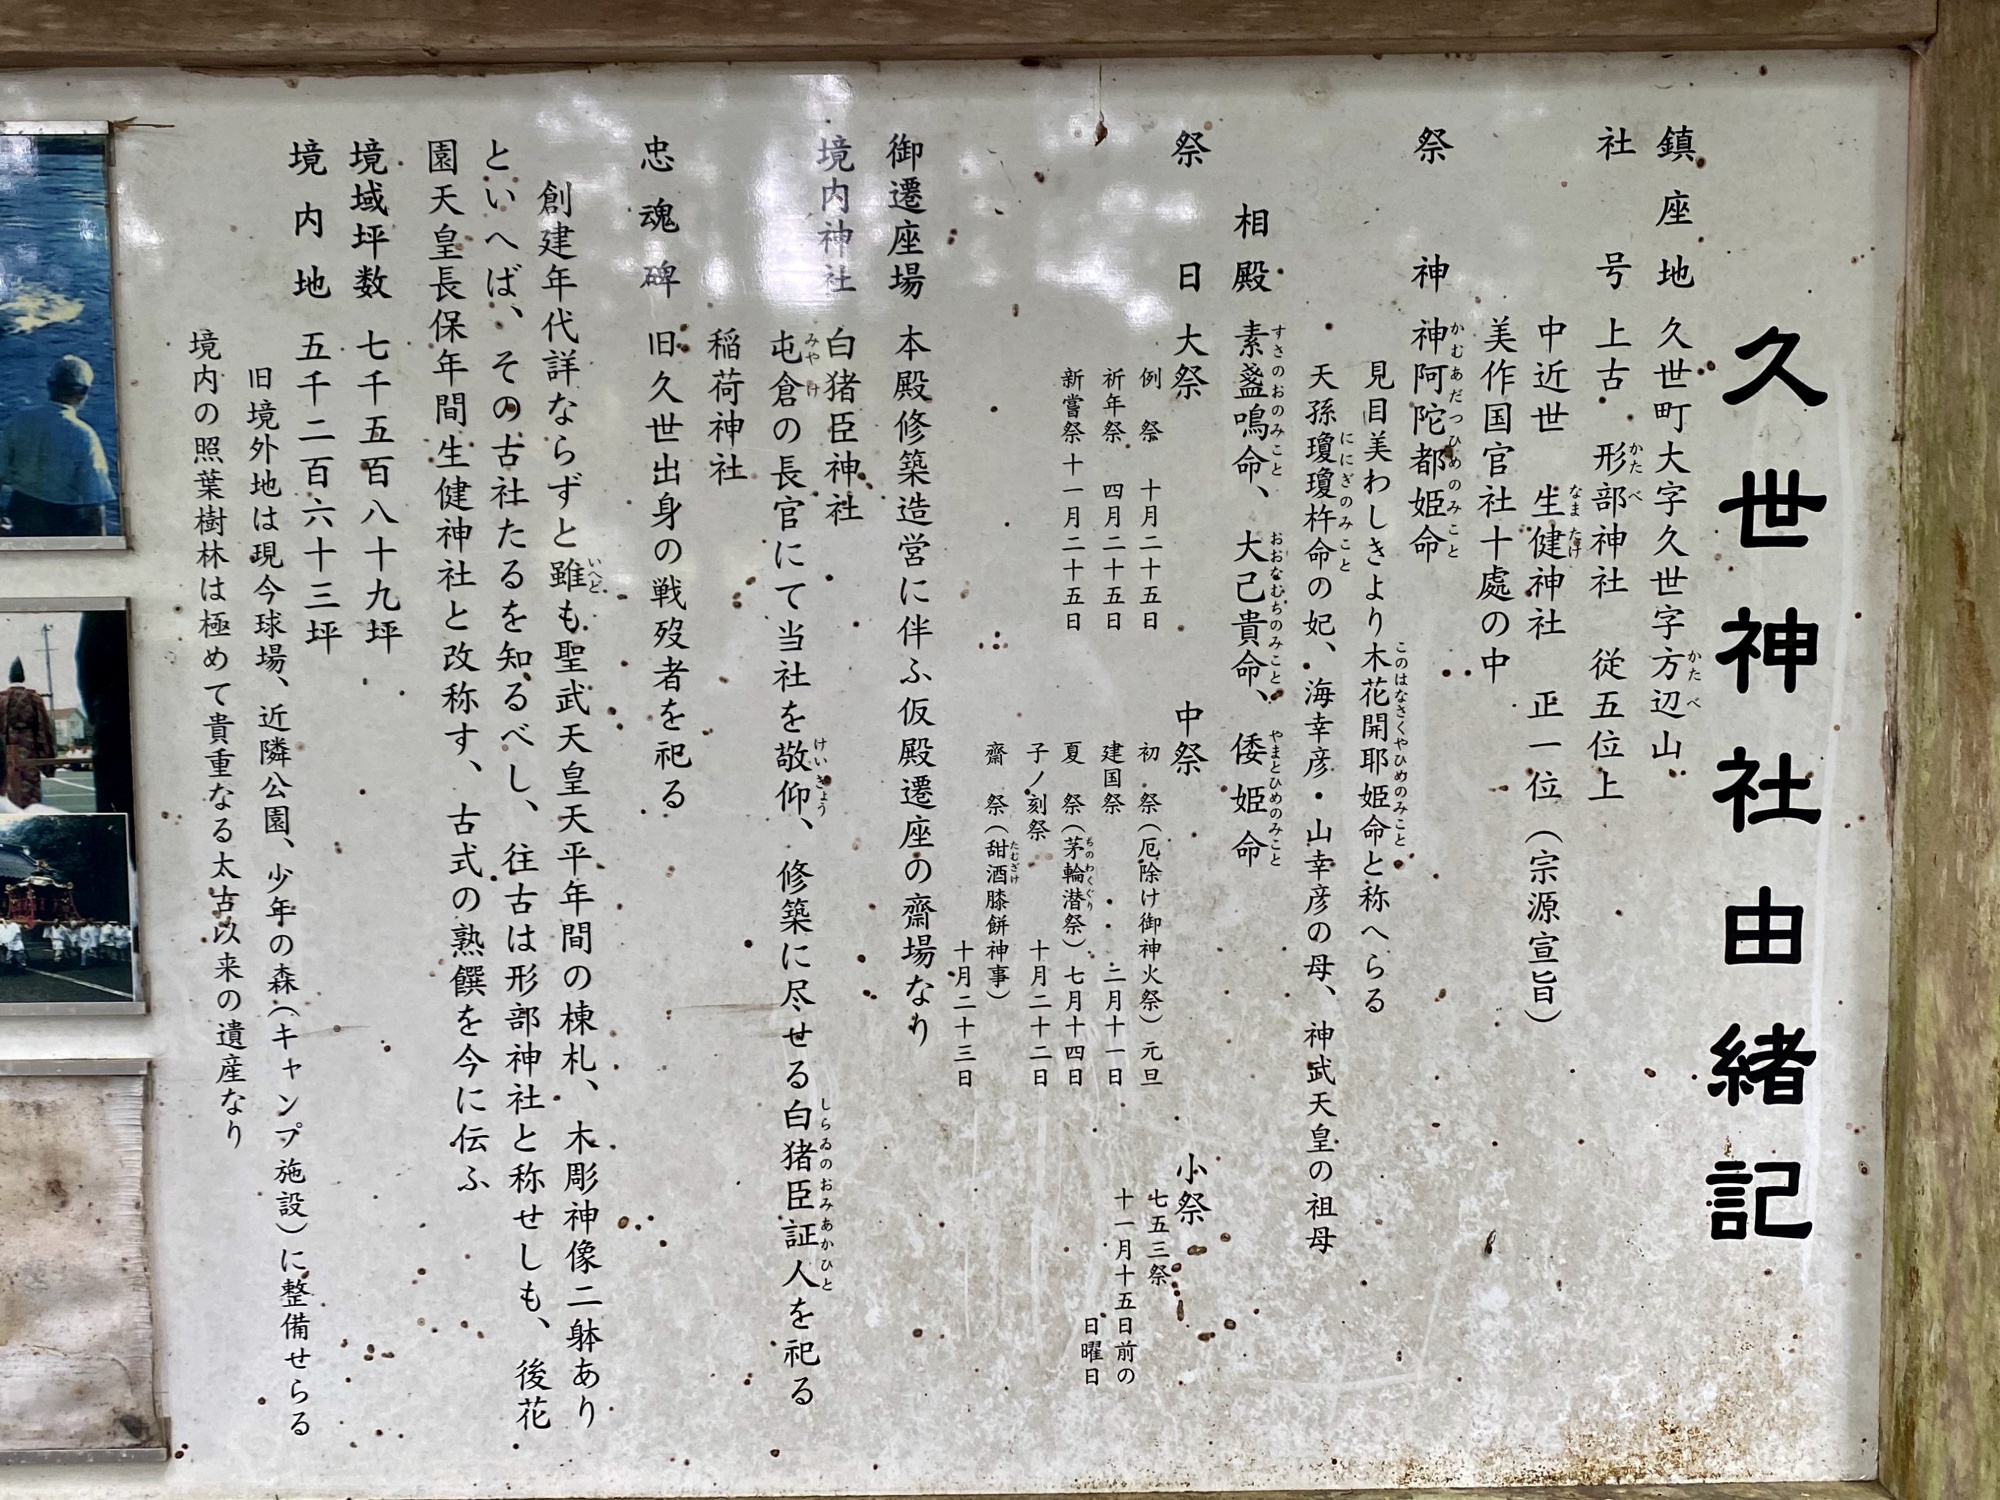 久世神社由緒記
鎮座地 久世町大字久世字方辺山
かたべ
社号 上古 形部神社 従五位上
かたべ
中近世 生健神社 正一位(宗源宣旨)
なまたけ
美作国官社十處の中
祭神 神阿陀都姫命
かむあだつひめのみこと
見目美わしきより木花開耶姫命と称へらる
このはなさくやひめのみこと
天孫瓊瓊杵命の妃、海幸彦・山幸彦の母、神武天皇の祖母
ににぎのみこと
相殿 素盞鳴命、大己貴命、倭姫命
すさのおのみこと おおなむちのみこと やまとひめのみこと
祭日 大祭
例祭 十月二十五日
祈年祭 四月二十五日
新嘗祭 十一月二十五日
中祭
初祭(厄除け御神火祭)元旦
建国祭 二月十一日
夏祭(茅輪潜祭)七月十四日
ちのわくぐり
子ノ刻祭 十月二十二日
齋祭(甜酒膝餅神事)
たむざけ
十月二十三日
小祭
七五三祭
十一月十五日前の
日曜日
御遷座場 本殿修築造営に伴ふ仮殿遷座の齋場なり
境内神社 白猪臣神社
屯倉の長官にて当社を敬仰、修築に尽せる白猪臣証人を祀る
みやけ けいぎょう しらゐのおみあかひと
稲荷神社
忠魂碑 旧久世出身の戦歿者を祀る
創建年代詳ならずと雖も聖武天皇天平年間の棟札、木彫神像二躰あり
いへど
といへば、その古社たるを知るべし、往古は形部神社と称せしも、後花
園天皇長保年間生健神社と改称す、古式の熟饌を今に伝ふ
境域坪数 七千五百八十九坪
境内地 五千二百六十三坪
旧境外地は現今球場、近隣公園、少年の森(キャンプ施設)に整備せらる
境内の照葉樹林は極めて貴重なる太古以来の遺産なり